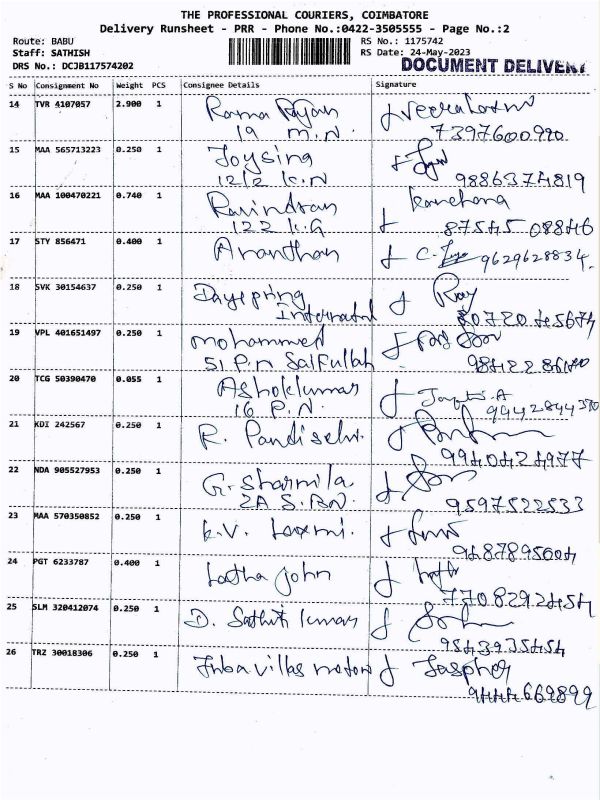 THE PROFESSIONAL COURIERS, COIMBATORE
Delivery Runsheet - PRR - Phone No.:0422-3505555 - Page No.:2
Route: BABU
RS No.: 1175742
Staff: SATHISH
RS Date: 24-May-2023
DRS No.: DCJB117574202
DOCUMENT DELIVERY
S No Consignment No Weight PCS Consignee Details Signature
14 TVR 4107057 2.900 1 Rama Rajan
19 M.N. 7397600990
15 MAA 565713223 0.250 1 Joysing
12/2 K.N 9886374819
16 MAA 100470221 0.740 1 Ravindran Kanchana
122 K.G 87545 08846
17 STY 856471 0.400 1 Ananthan 9629628834
18 SVK 30154637 0.250 1 Dayspring Roy
Internatnl
19 VPL 401651497 0.250 1 Mohammed
51 P.N Saifullah
20 TCG 50390470 0.055 1 Ashokkumar
16 P.N. 9942844370
21 KDI 242567 0.250 1 R. Pandiselvi
9940424977
22 NDA 905527953 0.250 1 G. Sharmila
2A S.BN. 9597522533
23 MAA 570350852 0.250 1 K.V. Laxmi.
9687895004
24 PGT 6233787 0.400 1 Latha John
7708292454
25 SLM 320412074 0.250 1 D. Sathish kumar
9543935454
26 TRZ 30018306 0.250 1 Inbavillas motors Jaspher
9444669899